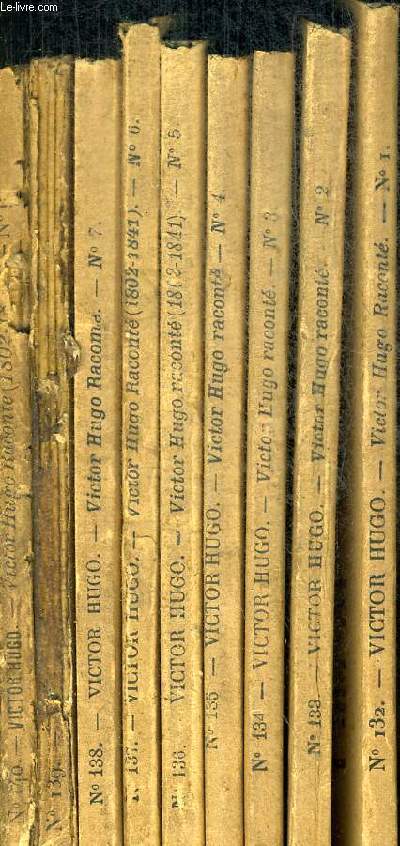 Le-livre.com
No 140. — VICTOR HUGO. — Victor Hugo Raconté (1802
No 139.
No 138. — VICTOR HUGO. — Victor Hugo Raconté. — No 7.
No 137. — VICTOR HUGO. — Victor Hugo Raconté (1802-1841). — No 6.
No 136. VICTOR HUGO. — Victor Hugo raconté (1802-1841) — No 5
No 135 — VICTOR HUGO. — Victor Hugo raconté — No 4
No 134 — VICTOR HUGO. — Victor Hugo raconté. — No 3
No 133. — VICTOR HUGO. — Victor Hugo raconté. No 2
No 132. — VICTOR HUGO. — Victor Hugo Raconté. — No 1.